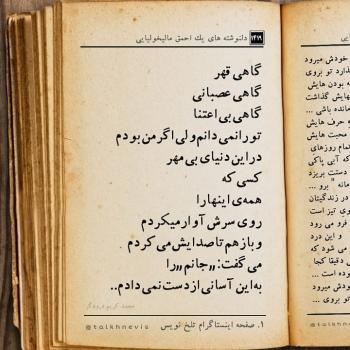 ۱۴۱۹ دلنوشته های یك احمق مالیخولیایی
گاهی قهر
گاهی عصبانی
گاهی بی اعتنا
تو را نمی دانم ولی اگر من بودم
در این دنیای بی مهر
کسی که
همه‌ی اینها را
روی سرش آوار میکردم
و باز هم تا صدایش می کردم
می گفت: "جانم" را
به این آسانی از دست نمی دادم..
۱. صفحه اینستاگرام تلخ نویس
@talkhnevis
خودش میرود
گذارد تو بروی
به بودن هایش
گذاشت
مانده باشی ...
حرف هایش
محبت هایش
تمام روزهای
که آبی پاکی
دستت بریزد
"برو ...
در زندگیتان
وی تیز است
فرو می رود
و این درد
می شود که
دقیقا کجا
وده است ...
خودش میرود
تو بروی ...
@talkhnevis